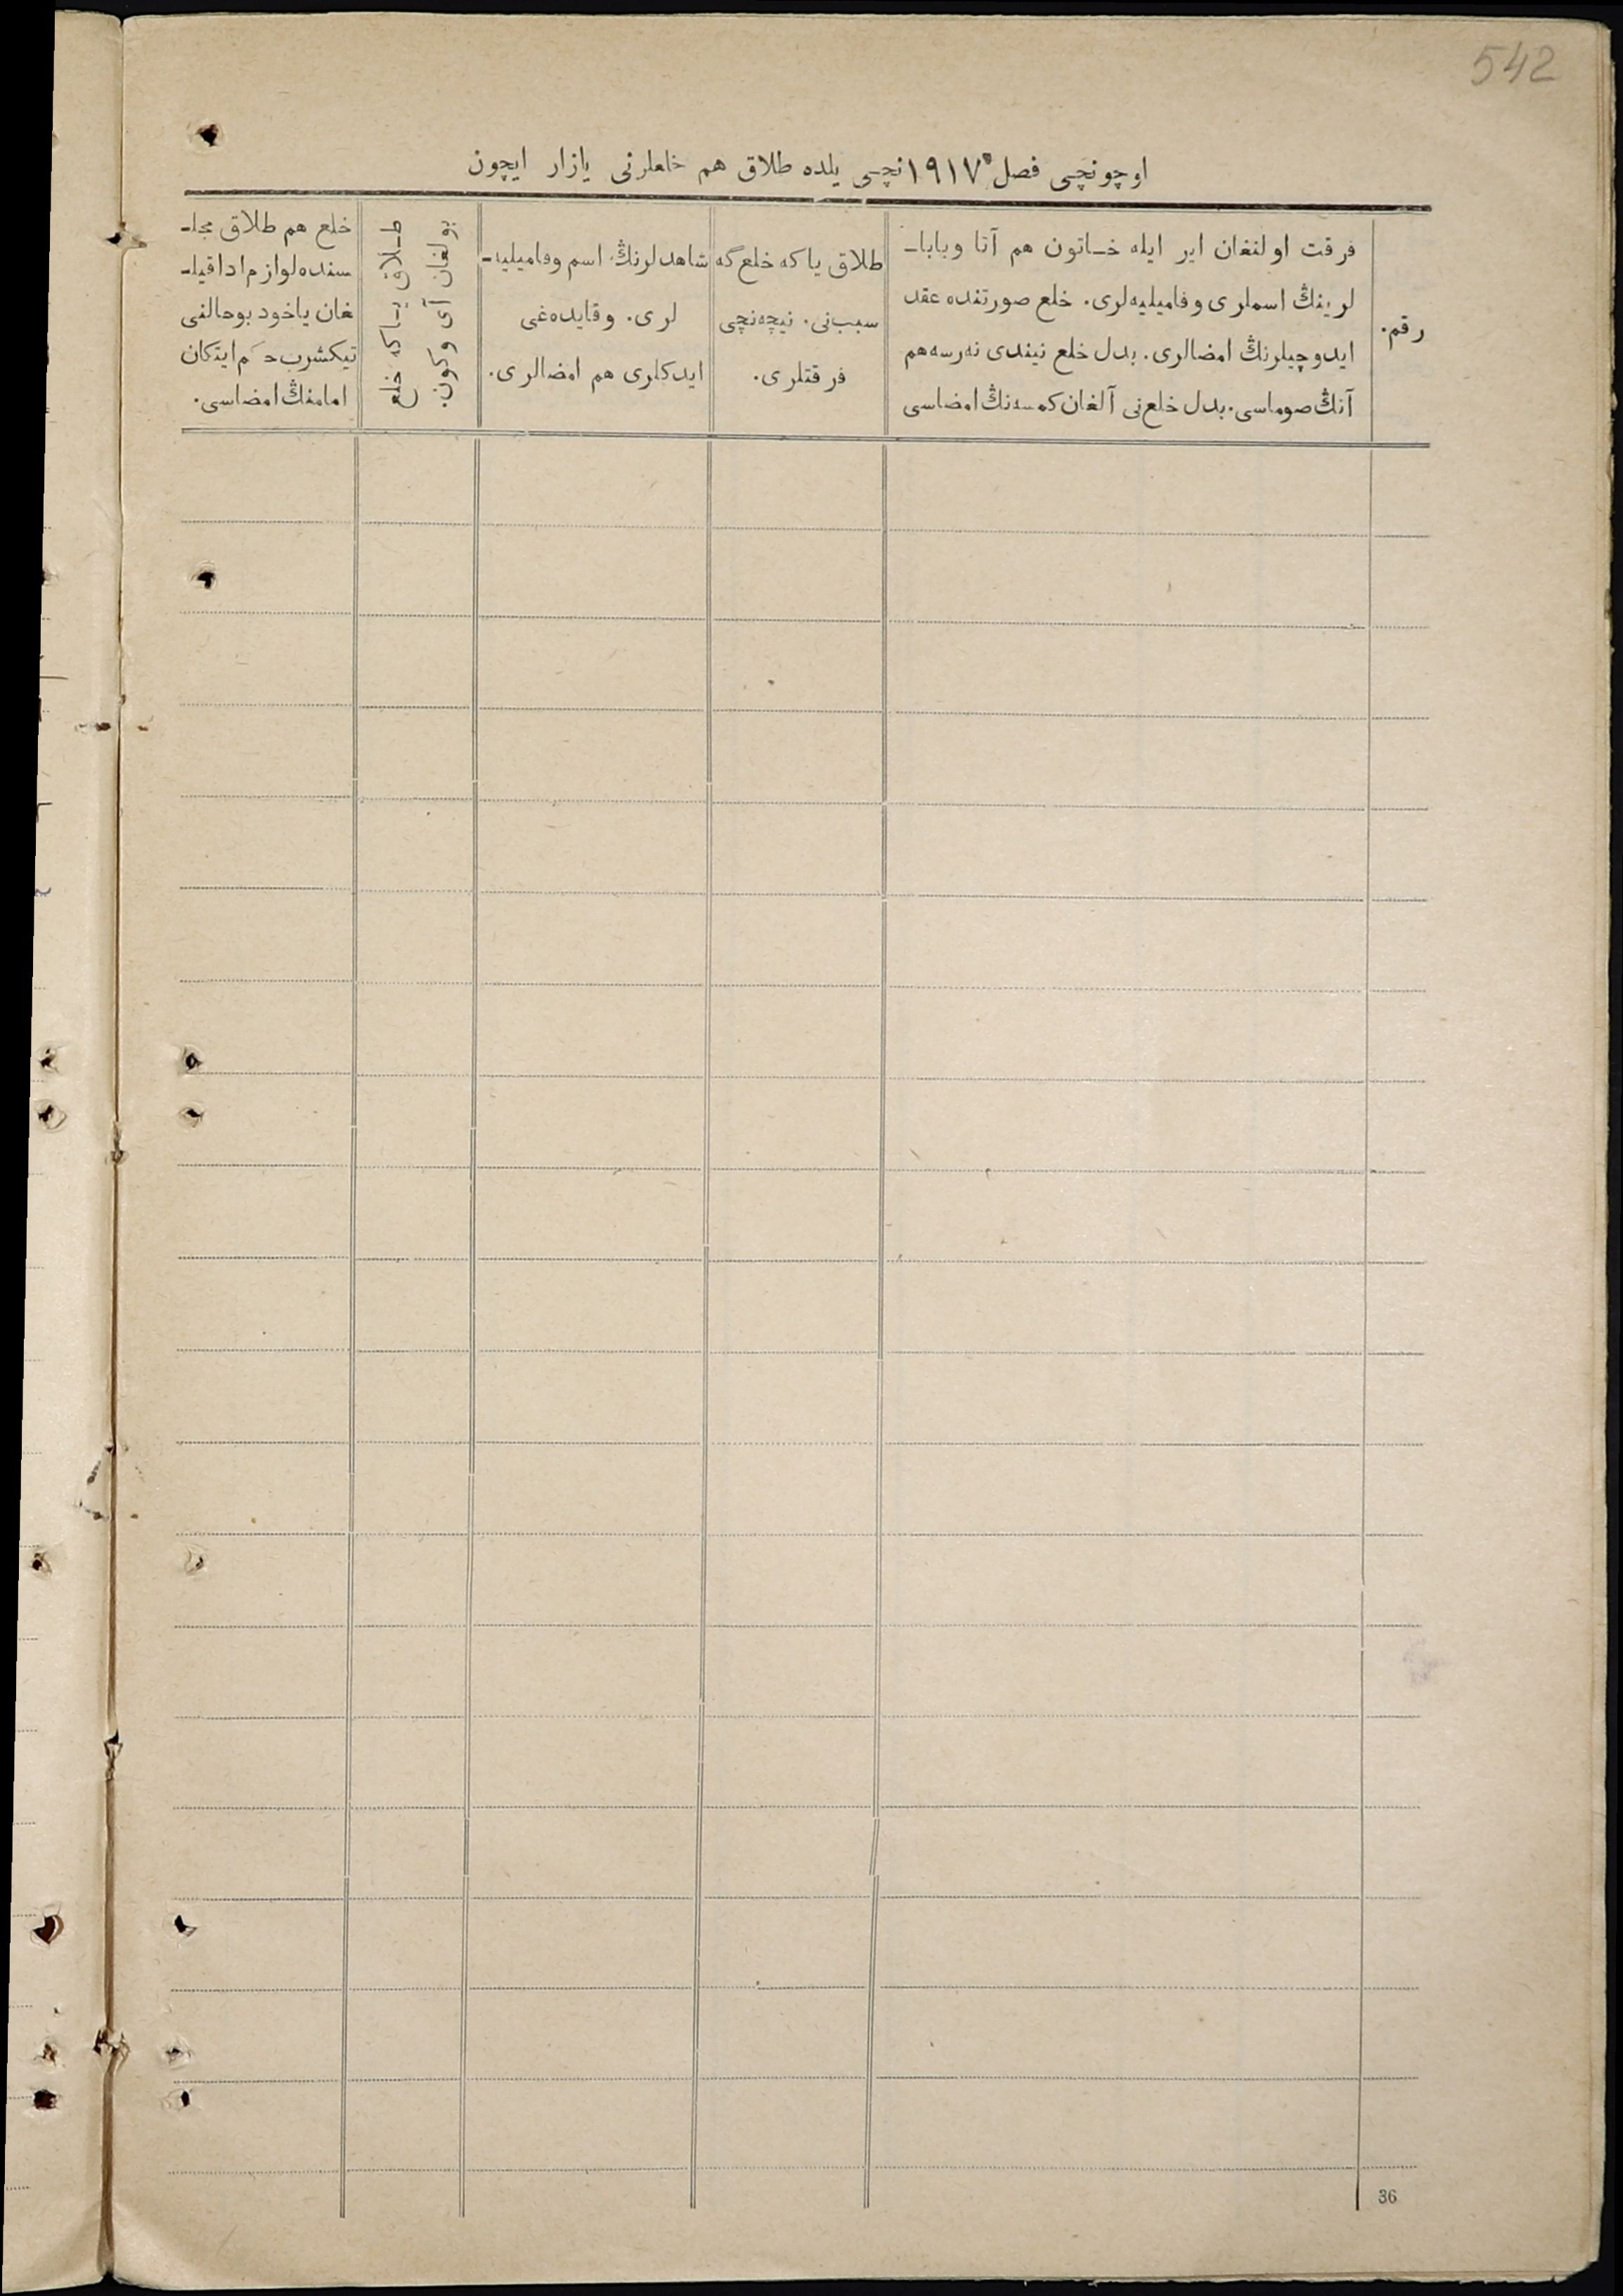 542
اوچونچی فصل ١٩١٧نچی یلده طلاق هم خلعلرنی یازار ایچون
رقم.
فرقت اولنغان ایر ایله خاتون هم آتا وبابا-
لرینڭ اسملری وفامیلیه‌لری. خلع صورتنده عقد
ایدوچیلرنڭ امضالری. بدل خلع نیندی نه‌رسه هم
آنڭ صوماسی. بدل خلع‌نی آلغان کمسه‌نڭ امضاسی
طلاق یا که خلع گه
سبب‌نی. نیچه‌نچی
فرقتلری.
شاهدلرنڭ اسم وفامیلیه-
لری. وقایده‌غی
ایدکلری هم امضالری.
طلاق یا که خلع
بولغان آی وکون.
خلع هم طلاق مجلـ
سنده لوازم ادا قیلـ
غان یاخود بو حالنی
تیکشرب حکم ایتکان
امامنڭ امضاسی.
36